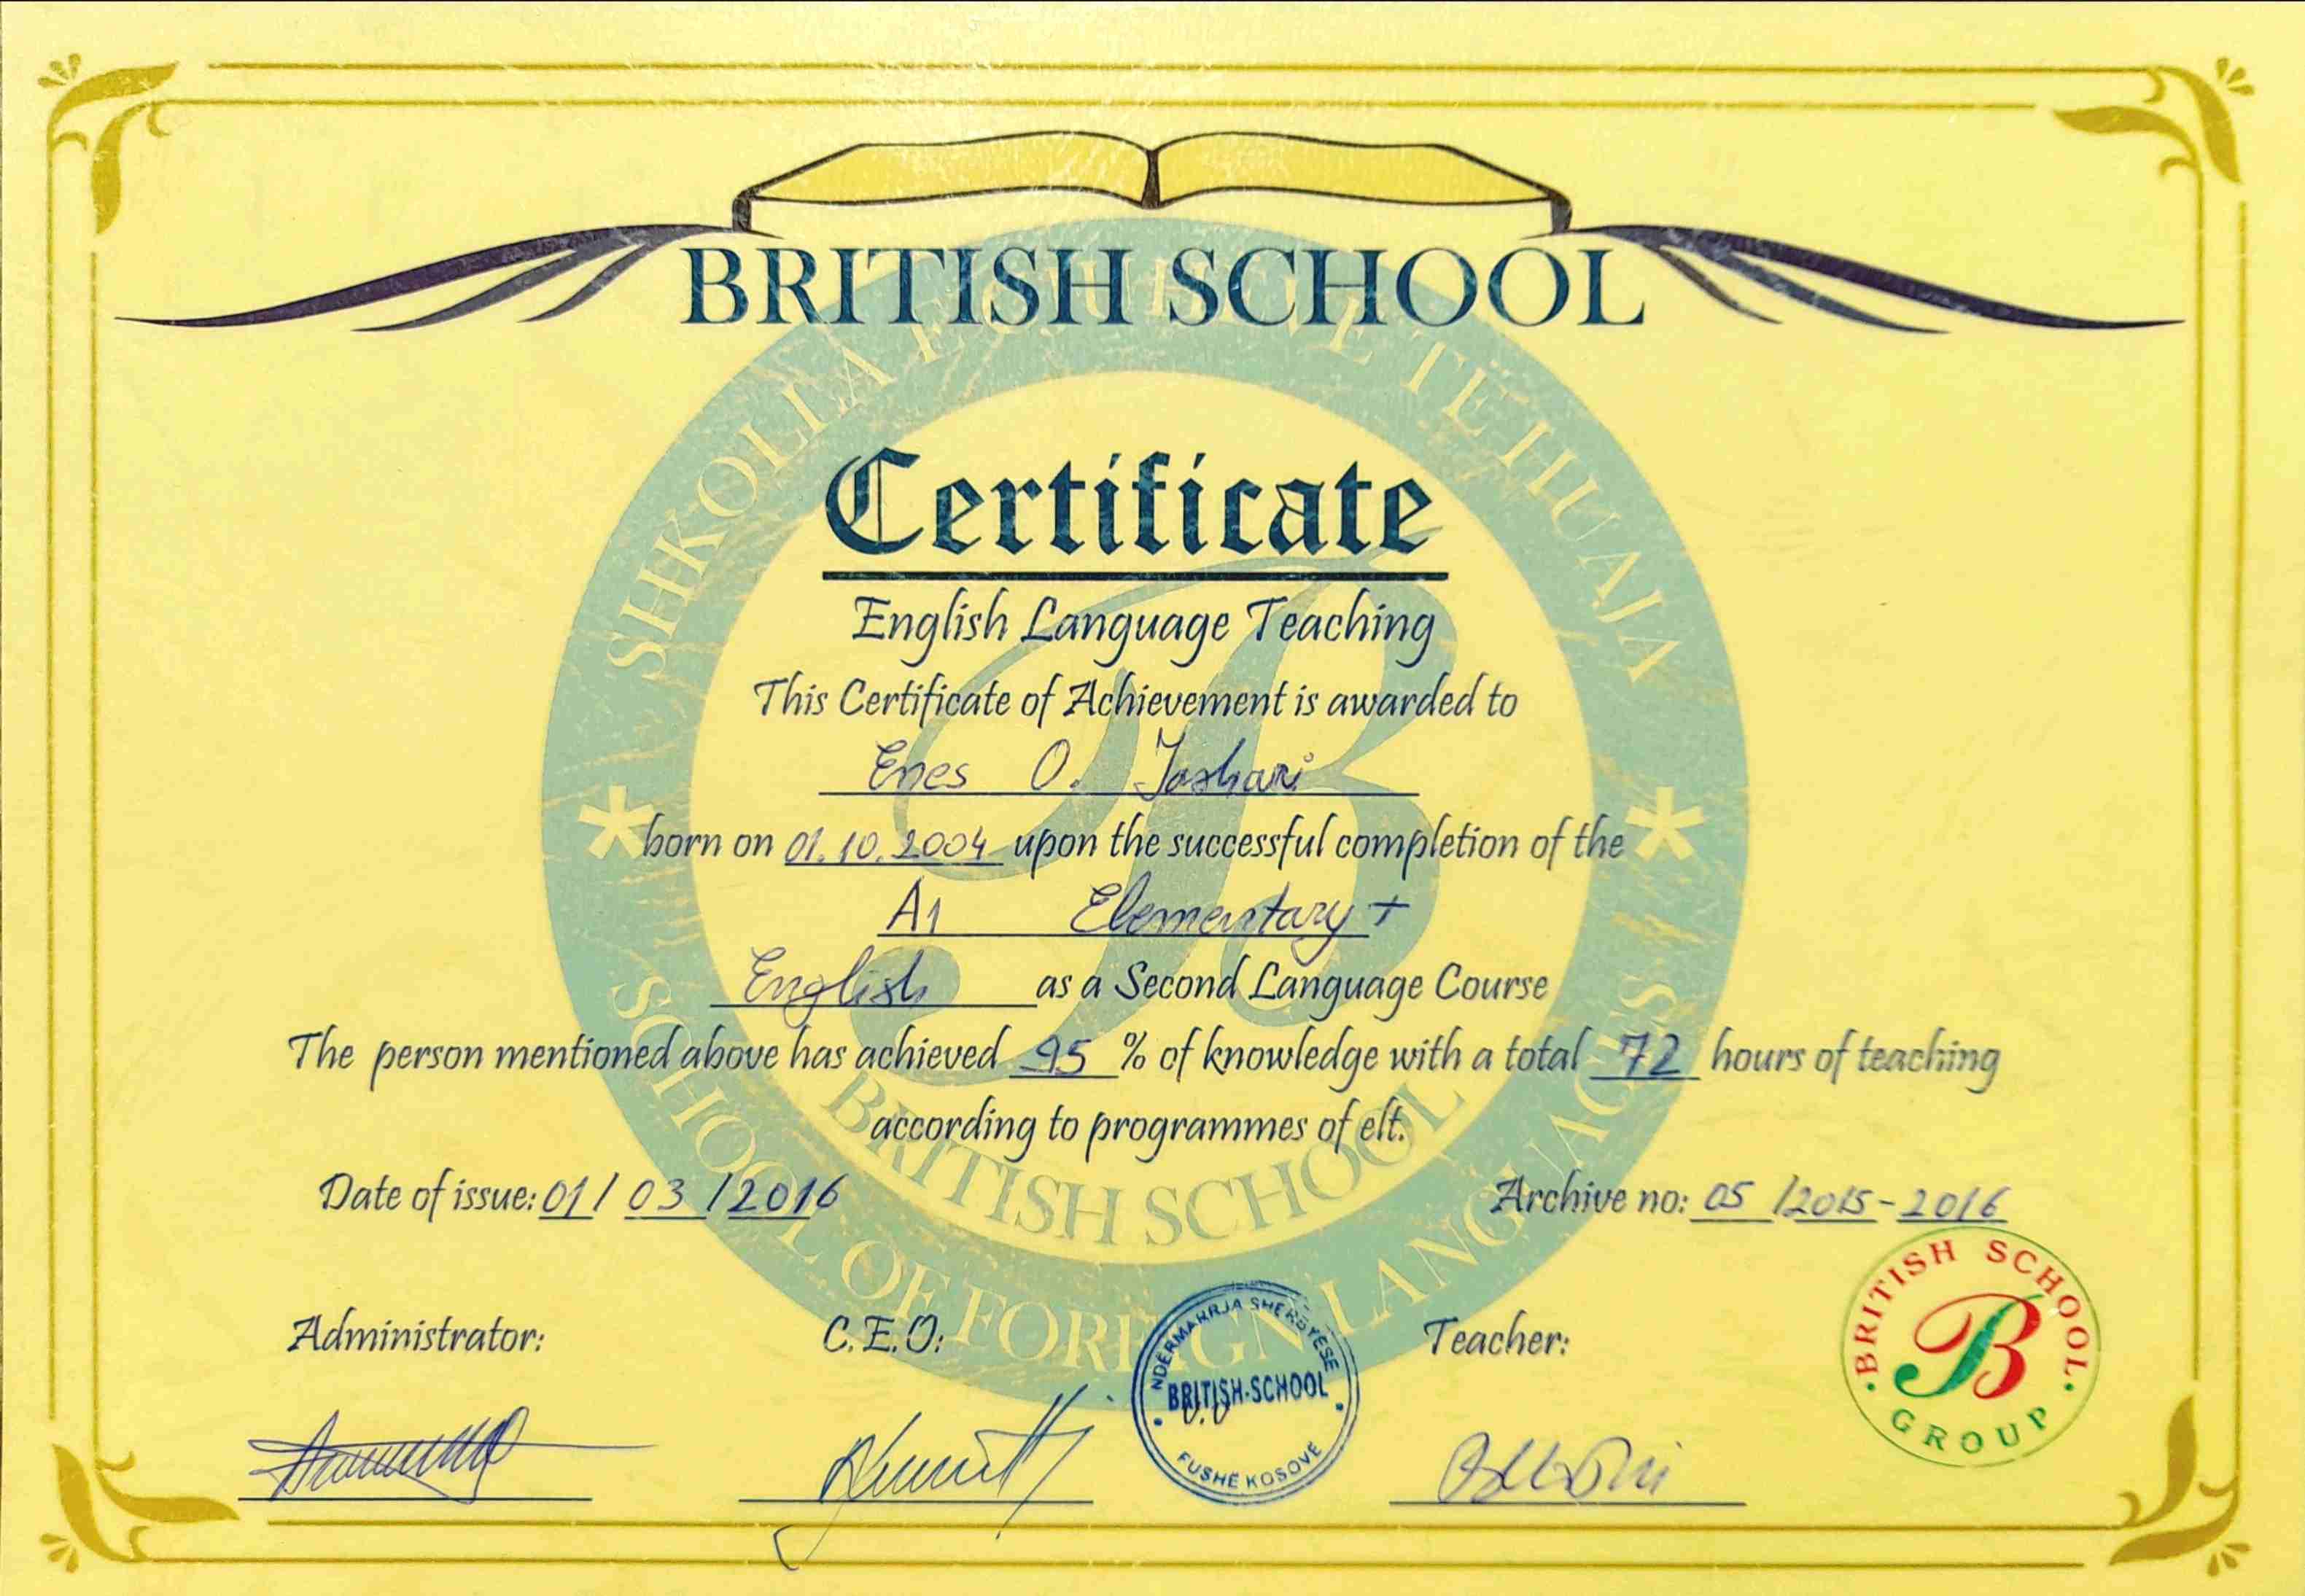 BRITISH SCHOOL
SHKOLLA E GJUHËVE TË HUAJA
Certificate
English Language Teaching
This Certificate of Achievement is awarded to
Enes O. Jashari
born on 01.10.2004 upon the successful completion of the
A1 Elementary +
English as a Second Language Course
The person mentioned above has achieved 95 % of knowledge with a total 72 hours of teaching
according to programmes of elt.
BRITISH SCHOOL
* SCHOOL OF FOREIGN LANGUAGES *
Date of issue: 01 / 03 / 2016
Archive no: 05 / 2015 - 2016
Administrator:
C.E.O:
Teacher:
NDËRMARRJA SHËRBYESE
BRITISH-SCHOOL
FUSHË KOSOVË
BRITISH SCHOOL
B
GROUP